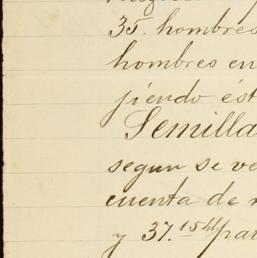 35. hombres
hombres en
jiendo ést
Semilla
segun se ve
cuenta de
y 37.15hl par